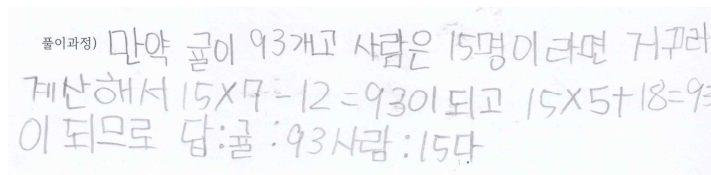 풀이과정) 만약 귤이 93개고 사람은 15명이라면 거꾸러
계산해서 15×7-12=93이 되고 15×5+18=93
이 되므로 답:귤:93 사람:15다